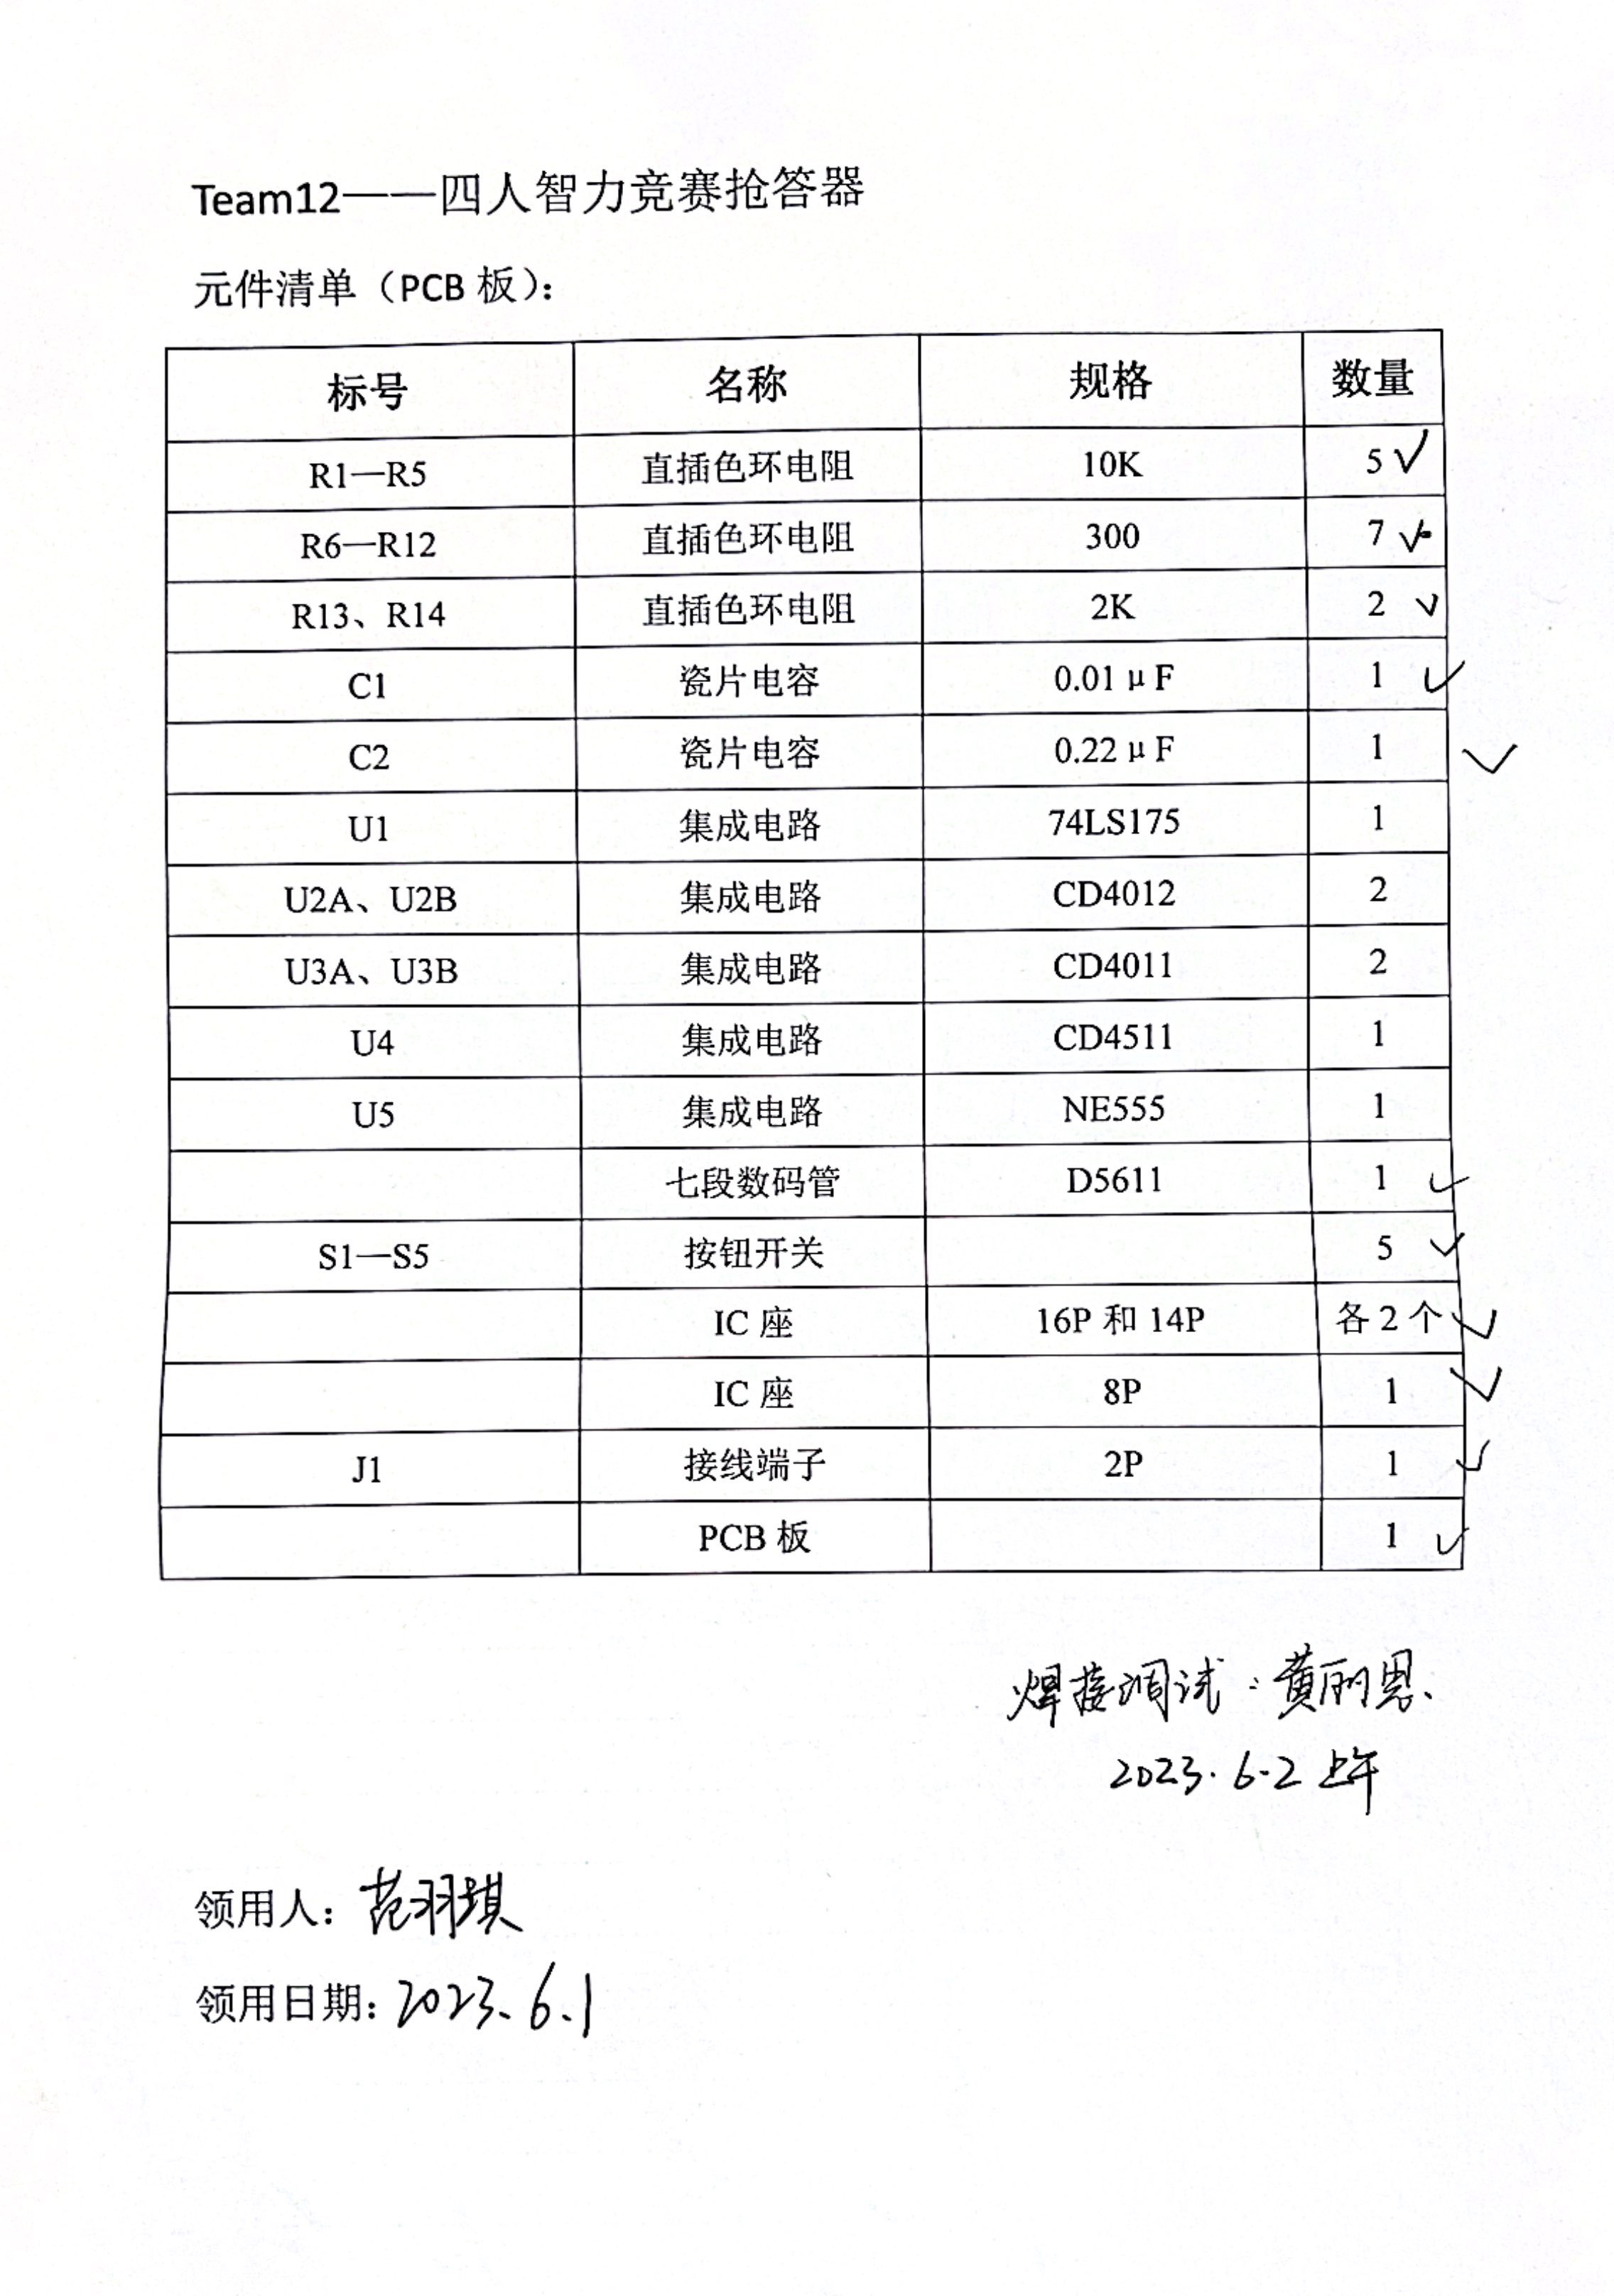 Team12——四人智力竞赛抢答器
元件清单（PCB 板）：
标号 名称 规格 数量
R1—R5 直插色环电阻 10K 5 ✓
R6—R12 直插色环电阻 300 7 ✓
R13、R14 直插色环电阻 2K 2 ✓
C1 瓷片电容 0.01μF 1 ✓
C2 瓷片电容 0.22μF 1 ✓
U1 集成电路 74LS175 1
U2A、U2B 集成电路 CD4012 2
U3A、U3B 集成电路 CD4011 2
U4 集成电路 CD4511 1
U5 集成电路 NE555 1
七段数码管 D5611 1 ✓
S1—S5 按钮开关 5 ✓
IC 座 16P 和 14P 各 2 个 ✓
IC 座 8P 1 ✓
J1 接线端子 2P 1 ✓
PCB 板 1 ✓
焊接调试：黄丽恩、
2023.6.2 上午
领用人：范羽琪
领用日期：2023.6.1